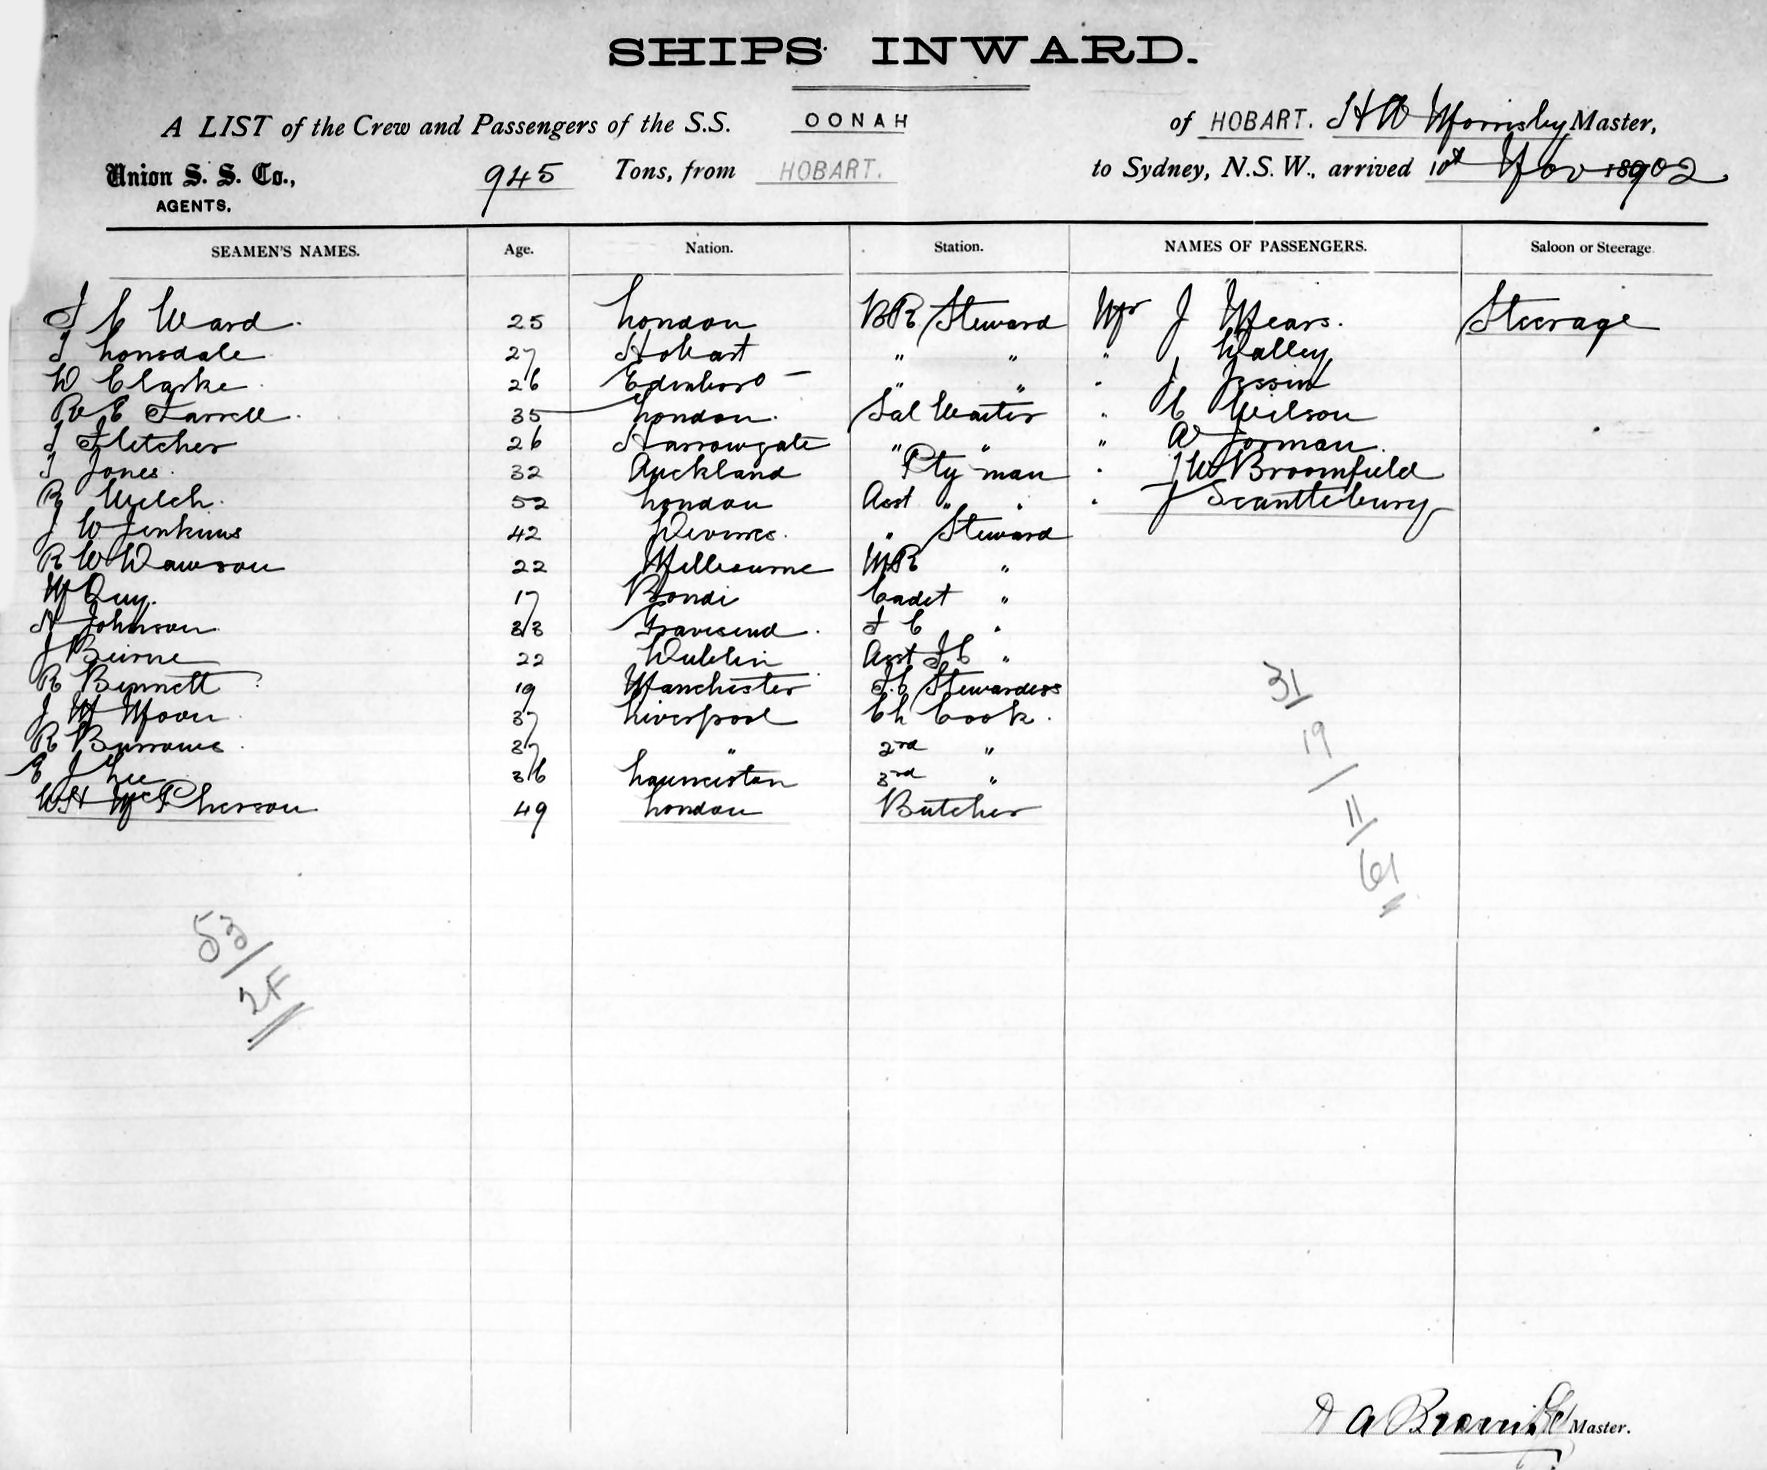 SHIPS INWARD.
A LIST of the Crew and Passengers of the S.S. OONAH of HOBART. Master,
Union S. S. Co., 945 Tons, from HOBART. to Sydney, N.S.W., arrived 10th Nov 1902
AGENTS.
SEAMEN'S NAMES. Age. Nation. Station. NAMES OF PASSENGERS. Saloon or Steerage
J C Ward. 25 London BR Steward Mr J Mears. Steerage
T Lonsdale 27 Hobart " " " J Walley
W Clarke. 26 Edinboro — " " "
R E Farrell. 35 London. Sal Waiter " C Wilson
T Fletcher 26 Harrowgate " " " A Jorman.
T Jones. 32 Auckland Pty man " J W Broomfield
R Welch. 52 London Asst " " " J Scantlebury
J W Jenkins 42 Devizes. " Steward
R W Dawson 22 Melbourne MR "
M Quy. 17 Bondi Cadet "
H Johnson 33 Gravesend. F C "
J Beirne 22 Dublin Asst F C "
R Bennett 19 Manchester F.C Stewardess
J M Moon. 37 Liverpool Ch Cook.
R Burrows. 37 " 2nd "
E J Lee 36 Launceston 3rd "
W H McPherson 49 London Butcher
31
19
11
61
53
2F
Master.